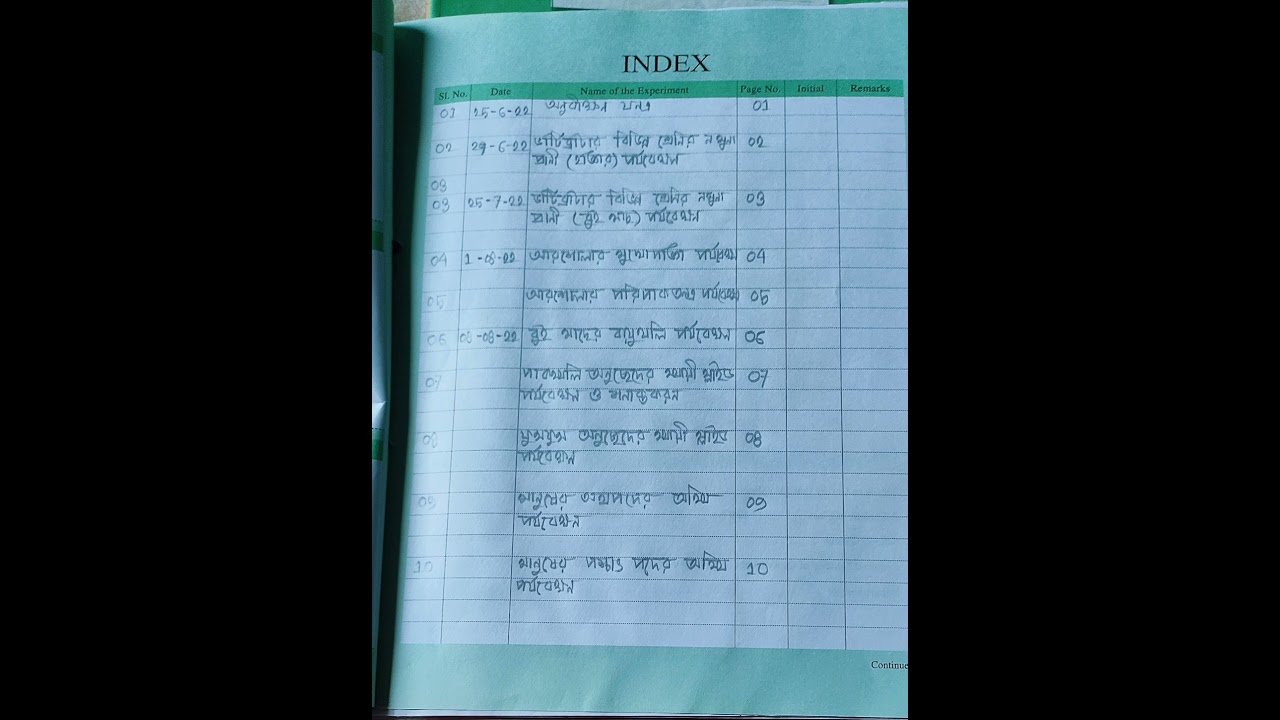 INDEX
Sl. No. Date Name of the Experiment Page No. Initial Remarks
01 25-6-22 অনুবীক্ষন যন্ত্র 01
02 29-6-22 ভার্টিব্রাটার বিভিন্ন শ্রেনির নমুনা 02
প্রানী (হাঙ্গর) পর্যবেক্ষন
03
03 25-7-22 ভার্টিব্রাটার বিভিন্ন শ্রেনির নমুনা 03
প্রানী (রুই মাছ) পর্যবেক্ষন
04 1-08-22 আরশোলার মুখোপাঙ্গ পর্যবেক্ষন 04
05 আরশোলার পরিপাকতন্ত্র পর্যবেক্ষন 05
06 08-08-22 রুই মাছের বায়ুথলি পর্যবেক্ষন 06
07 পাকস্থলি অনুচ্ছেদের স্থায়ী স্লাইড 07
পর্যবেক্ষন ও শনাক্তকরন
08 ফুসফুস অনুচ্ছেদের স্থায়ী স্লাইড 08
পর্যবেক্ষন
09 মানুষের অগ্রপদের অস্থি 09
পর্যবেক্ষন
10 মানুষের পশ্চাৎ পদের অস্থি 10
পর্যবেক্ষন
Continue